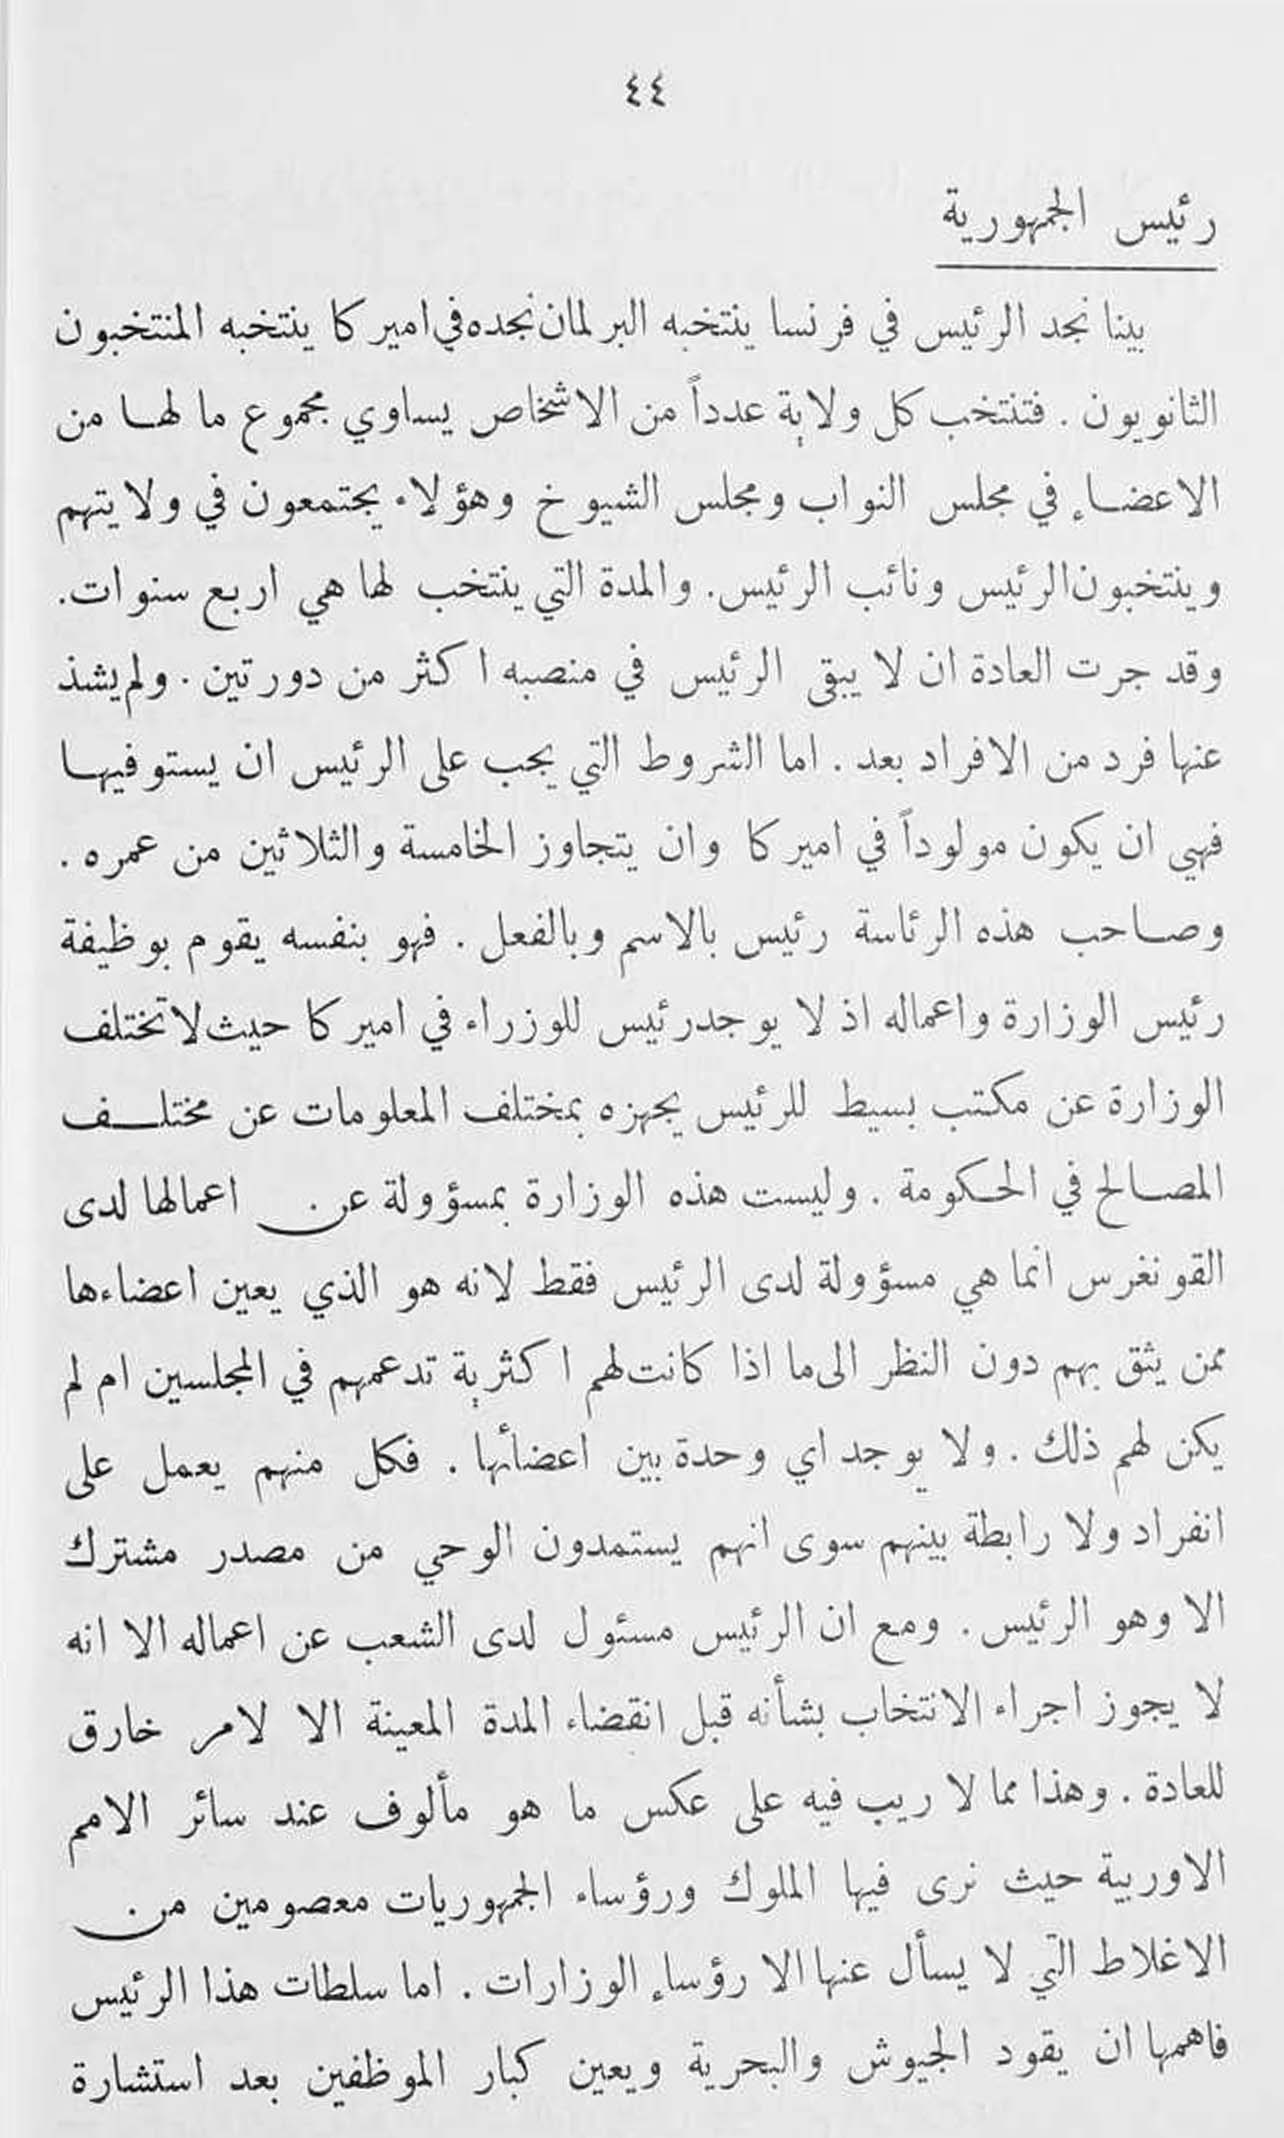 ٤٤
رئيس الجمهورية
بينا نجد الرئيس في فرنسا ينتخبه البرلمان نجده في اميركا ينتخبه المنتخبون
الثانويون . فتنتخب كل ولاية عدداً من الاشخاص يساوي مجموع ما لها من
الاعضاء في مجلس النواب ومجلس الشيوخ وهؤلاء يجتمعون في ولايتهم
وينتخبون الرئيس ونائب الرئيس. والمدة التي ينتخب لها هي اربع سنوات.
وقد جرت العادة ان لا يبقى الرئيس في منصبه اكثر من دورتين . ولم يشذ
عنها فرد من الافراد بعد . اما الشروط التي يجب على الرئيس ان يستوفيها
فهي ان يكون مولوداً في اميركا وان يتجاوز الخامسة والثلاثين من عمره .
وصاحب هذه الرئاسة رئيس بالاسم وبالفعل . فهو بنفسه يقوم بوظيفة
رئيس الوزارة واعماله اذ لا يوجد رئيس للوزراء في اميركا حيث لا تختلف
الوزارة عن مكتب بسيط للرئيس يجهزه بمختلف المعلومات عن مختلف
المصالح في الحكومة . وليست هذه الوزارة بمسؤولة عن اعمالها لدى
القونغرس انما هي مسؤولة لدى الرئيس فقط لانه هو الذي يعين اعضاءها
ممن يثق بهم دون النظر الى ما اذا كانت لهم اكثرية تدعمهم في المجلسين ام لم
يكن لهم ذلك . ولا يوجد اي وحدة بين اعضائها . فكل منهم يعمل على
انفراد ولا رابطة بينهم سوى انهم يستمدون الوحي من مصدر مشترك
الا وهو الرئيس . ومع ان الرئيس مسئول لدى الشعب عن اعماله الا انه
لا يجوز اجراء الانتخاب بشأنه قبل انقضاء المدة المعينة الا لامر خارق
للعادة . وهذا مما لا ريب فيه على عكس ما هو مألوف عند سائر الامم
الاوربية حيث نرى فيها الملوك ورؤساء الجمهوريات معصومين من
الاغلاط التي لا يسأل عنها الا رؤساء الوزارات . اما سلطات هذا الرئيس
فاهمها ان يقود الجيوش والبحرية ويعين كبار الموظفين بعد استشارة